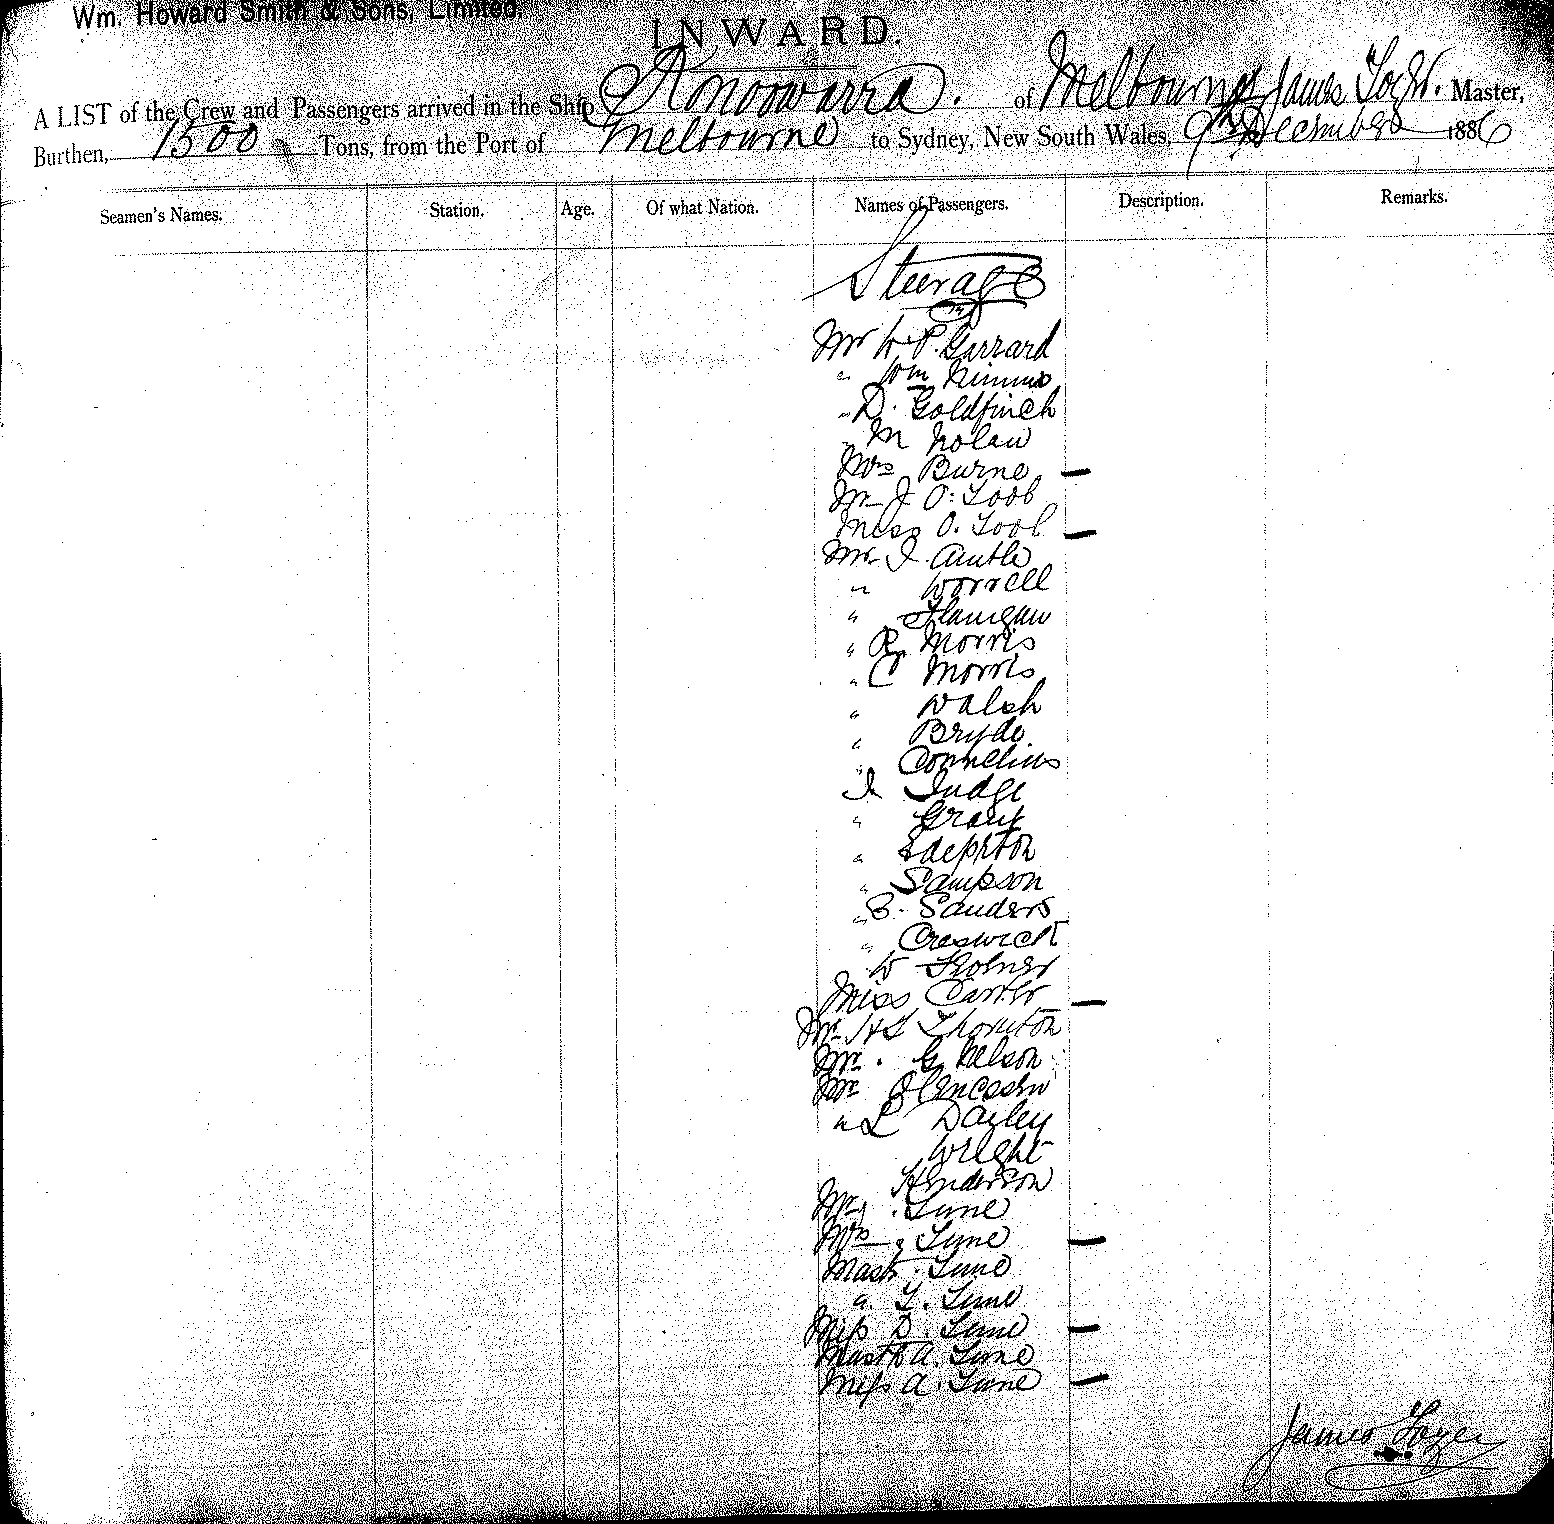 Wm. Howard Smith & Sons, Limited.
INWARD.
A LIST of the Crew and Passengers arrived in the Ship Konoowarra. of Melbourne James Master,
Burthen, 1500 Tons, from the Port of Melbourne to Sydney, New South Wales, 9th December 1886
Seamen's Names. Station. Age. Of what Nation. Names of Passengers. Description. Remarks.
Steerage
Mr W. P. Garrard
" Wm Nimmo
" D. Goldfinch
" M Nolan
Mrs Burne
Mr J O. Toob
Miss O. Tool
Mr J.
" Worrell
" Flanigan
" R Morris
" C Morris
" Walsh
" Bryde
" Cornelius
J. Judge
" Grant
"
" Sampson
" B. Sanders
" Creswick
W
Miss Carter
Mr H S Thornton
Mr. G. Nelson
Mr
" L Dayley
Wright
Henderson
Mr Lune
Mrs " Lune
Mastr. Lune
" L. Lune
Miss D. Lune
Mastr A. Lune
Miss A. Lune
James